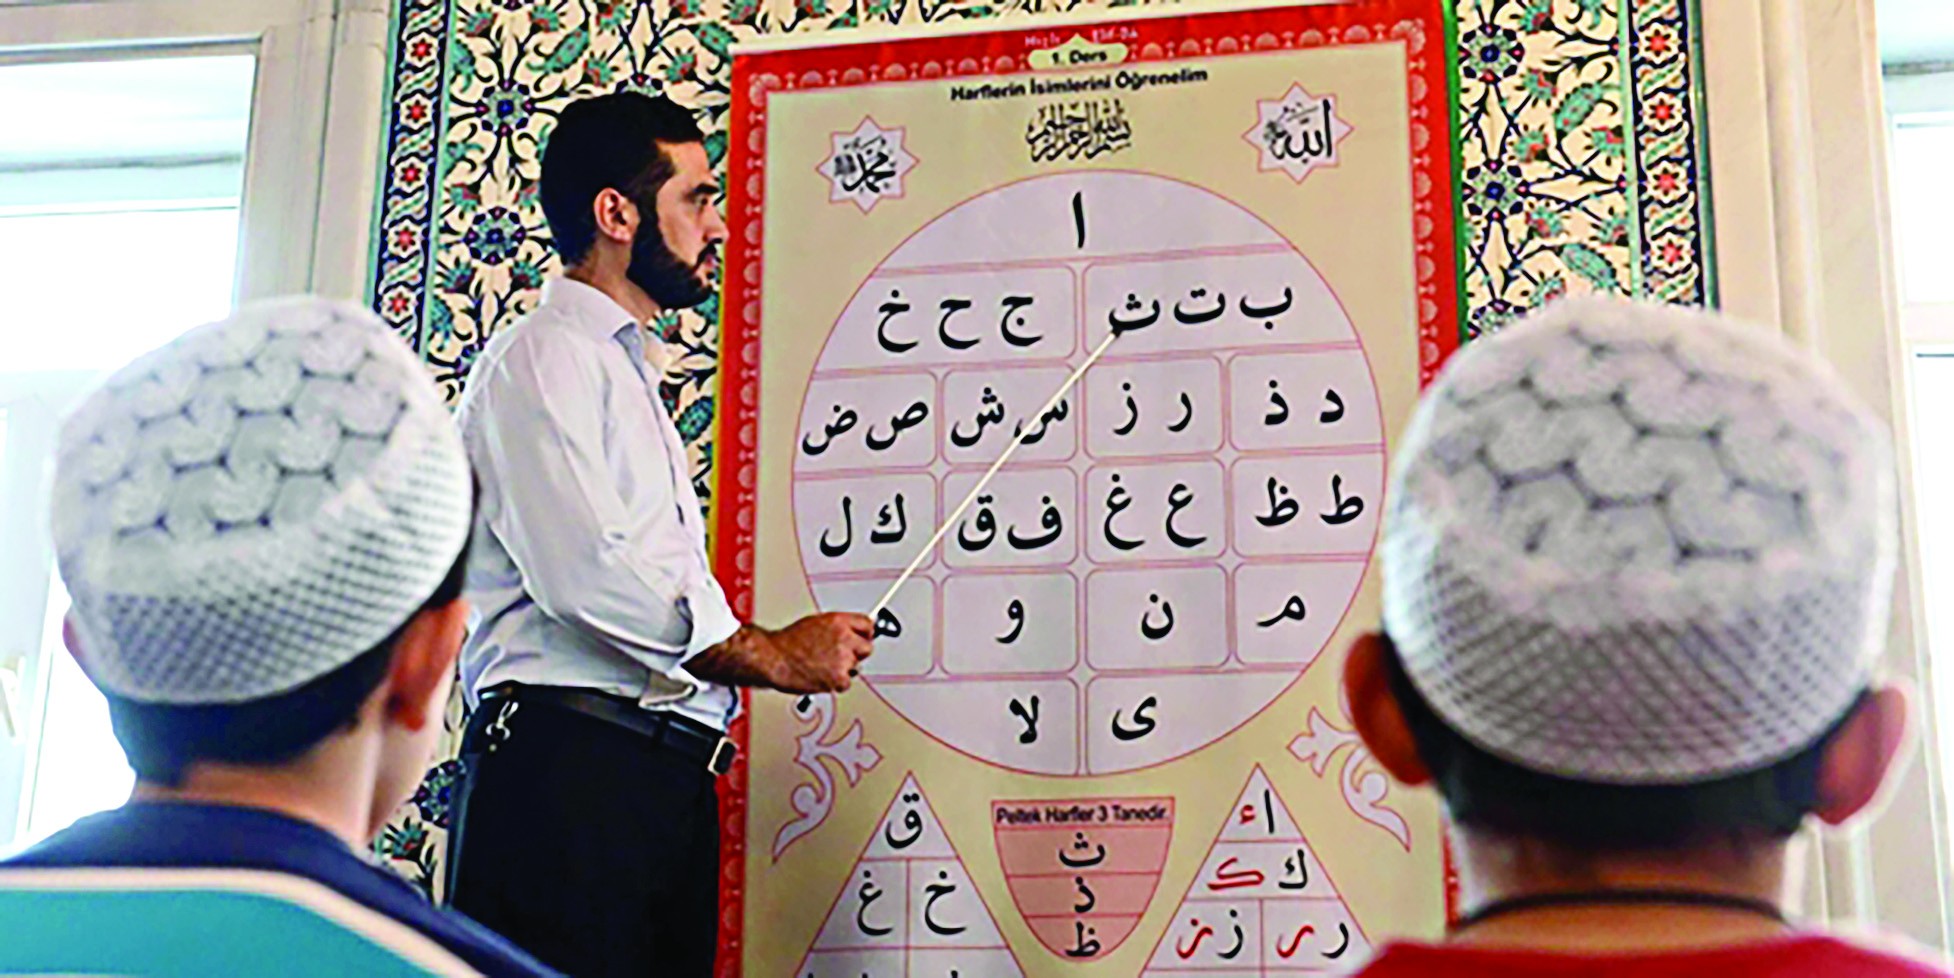 Hızlı Elif-Ba
1. Ders
Harflerin İsimlerini Öğrenelim
بسم الله الرحمن الرحيم
محمد
الله
ا
ب ت ث
ج ح خ
د ذ
ر ز
س ش
ص ض
ط ظ
ع غ
ف ق
ك ل
م
ن
و
ه
ى
لا
Peltek Harfler 3 Tanedir.
ث
ذ
ظ
ق
خ
غ
ا ء
ك ک
ر ر
ز ز